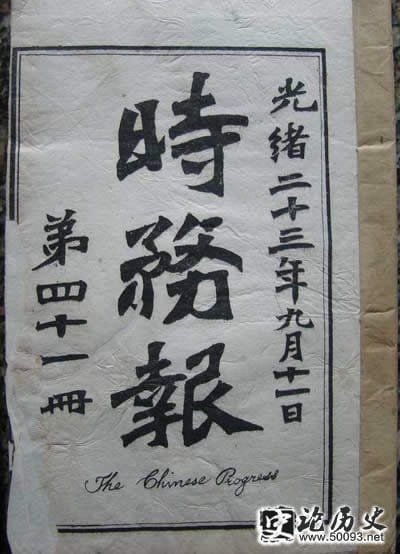 光緒二十三年九月十一日
時務報
第四十一冊
The Chinese Progress
论历史
www.50093.net